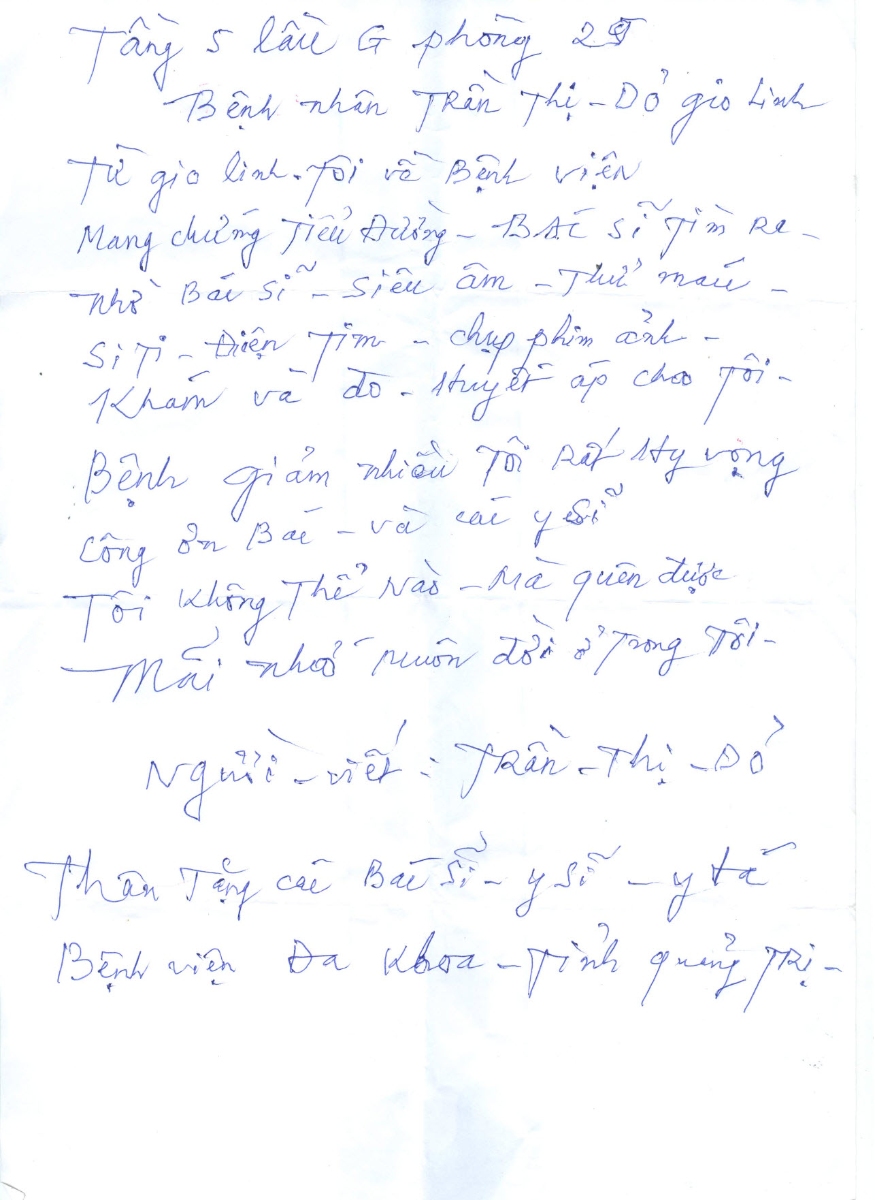 Tầng 5 lầu G phòng 25
Bệnh nhân Trần Thị - Dỏ gio Linh
Từ gio linh. Tôi về Bệnh viện
Mang chứng Tiểu Đường - BÁC Sĩ Tìm Ra -
Nhờ Bác Sĩ - Siêu âm - Thử máu -
Si Ti - Điện Tim - chụp phim ảnh -
Khám và đo - Huyết áp cho Tôi -
Bệnh giảm nhiều Tôi Rất Hy vọng
Công ơn Bác - và các y Sĩ
Tôi Không Thể Nào - Mà quên được
Mãi nhớ muôn đời ở Trong Tôi -
Người - viết : Trần - Thị - Dỏ
Thân Tặng các Bác Sĩ - y Sĩ - y tá
Bệnh viện Đa Khoa - Tỉnh Quảng Trị -